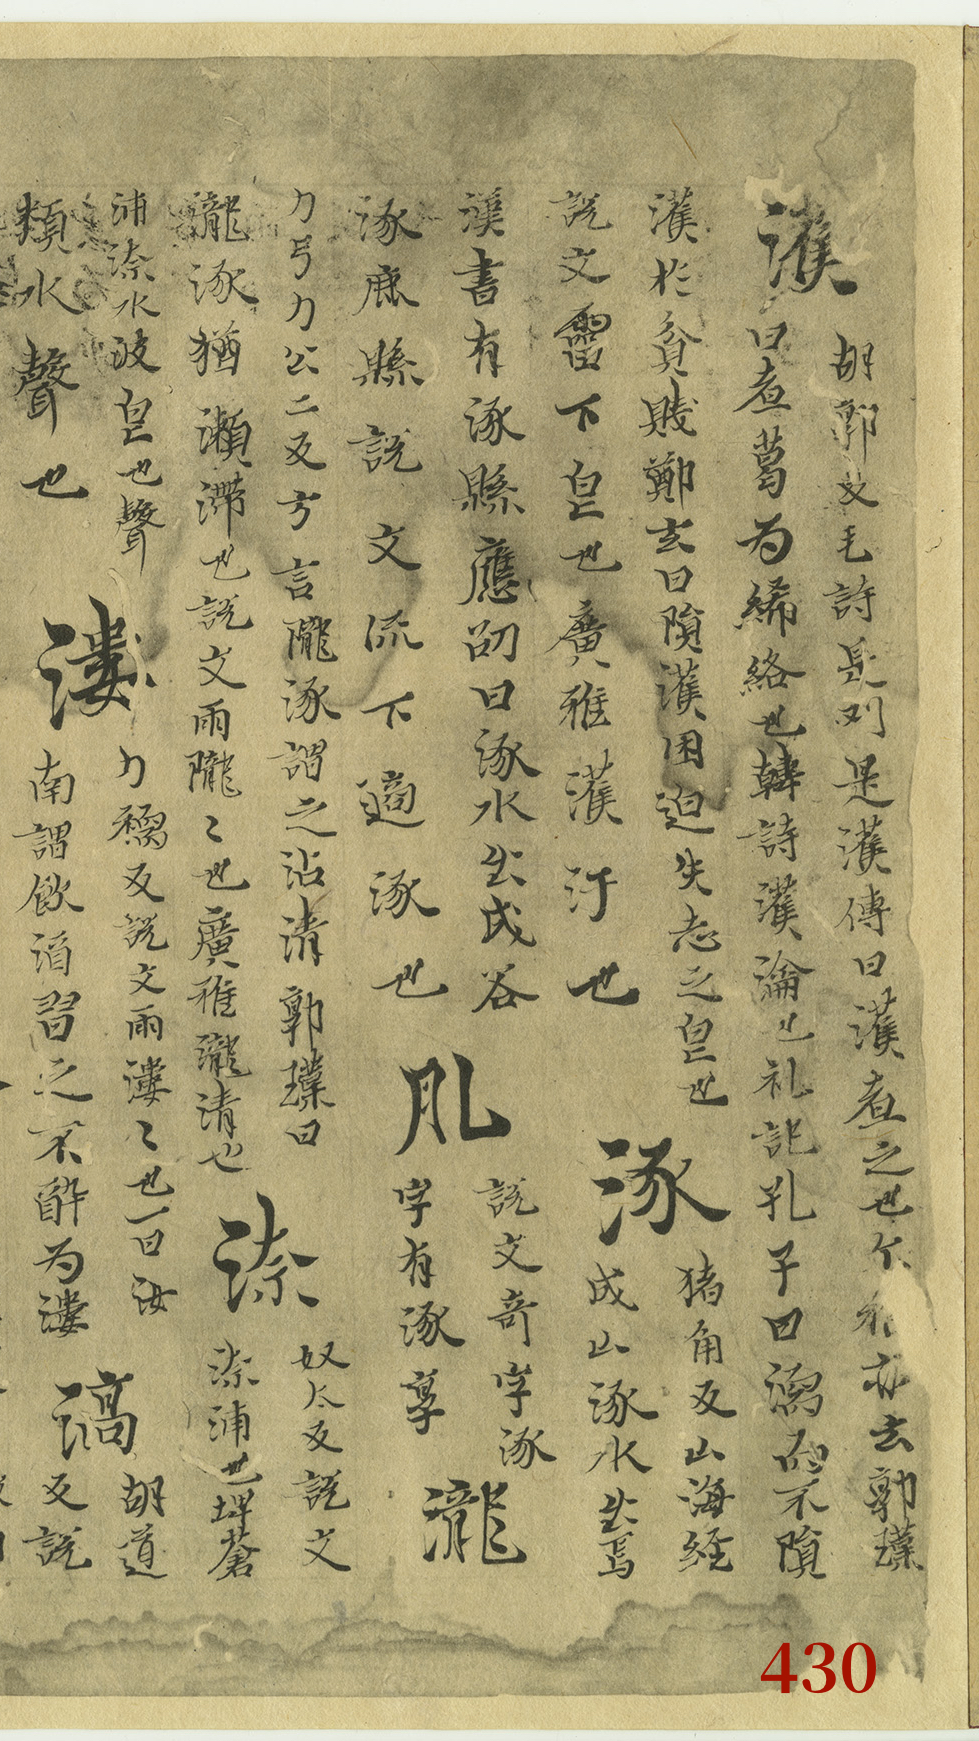 濩
胡郭反毛詩是刈是濩傳曰濩煮之也尒雅亦云郭璞
曰煮葛为絺綌也韓詩濩瀹也礼記孔子曰濡而不隕
濩於貧賤鄭玄曰隕濩困迫失志之皃也
説文霤下皃也廣雅濩汙也
涿
猪角反山海経
成山涿水出焉
漢書有涿縣應劭曰涿水出戍谷
涿鹿縣説文流下適涿也
説文奇字涿
字有涿享
瀧
力弓力公二反方言瀧涿謂之沾清郭璞曰
瀧涿猶瀬滞也説文雨瀧〻也廣雅瀧清也
渿
奴太反説文
渿沛也埤蒼
沛渿水波皃也聲
類水聲也
漊
力穤反説文雨漊〻也一曰汝
南謂飲酒習之不酔为漊
滈
胡道
反説
430